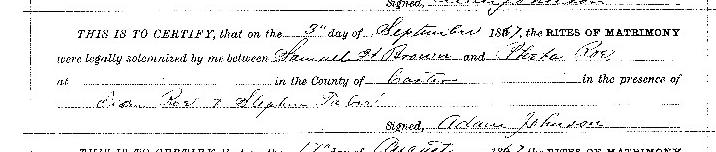 Signed,
THIS IS TO CERTIFY, that on the 3" day of September 1867, the RITES OF MATRIMONY
were legally solemnized by me between Samuel H Brown and Pheba Roe
at in the County of Carter in the presence of
Roe & Stephen
Signed, Adam Johnson
THIS IS TO CERTIFY, that on the 17" day of August 1867, the RITES OF MATRIMONY